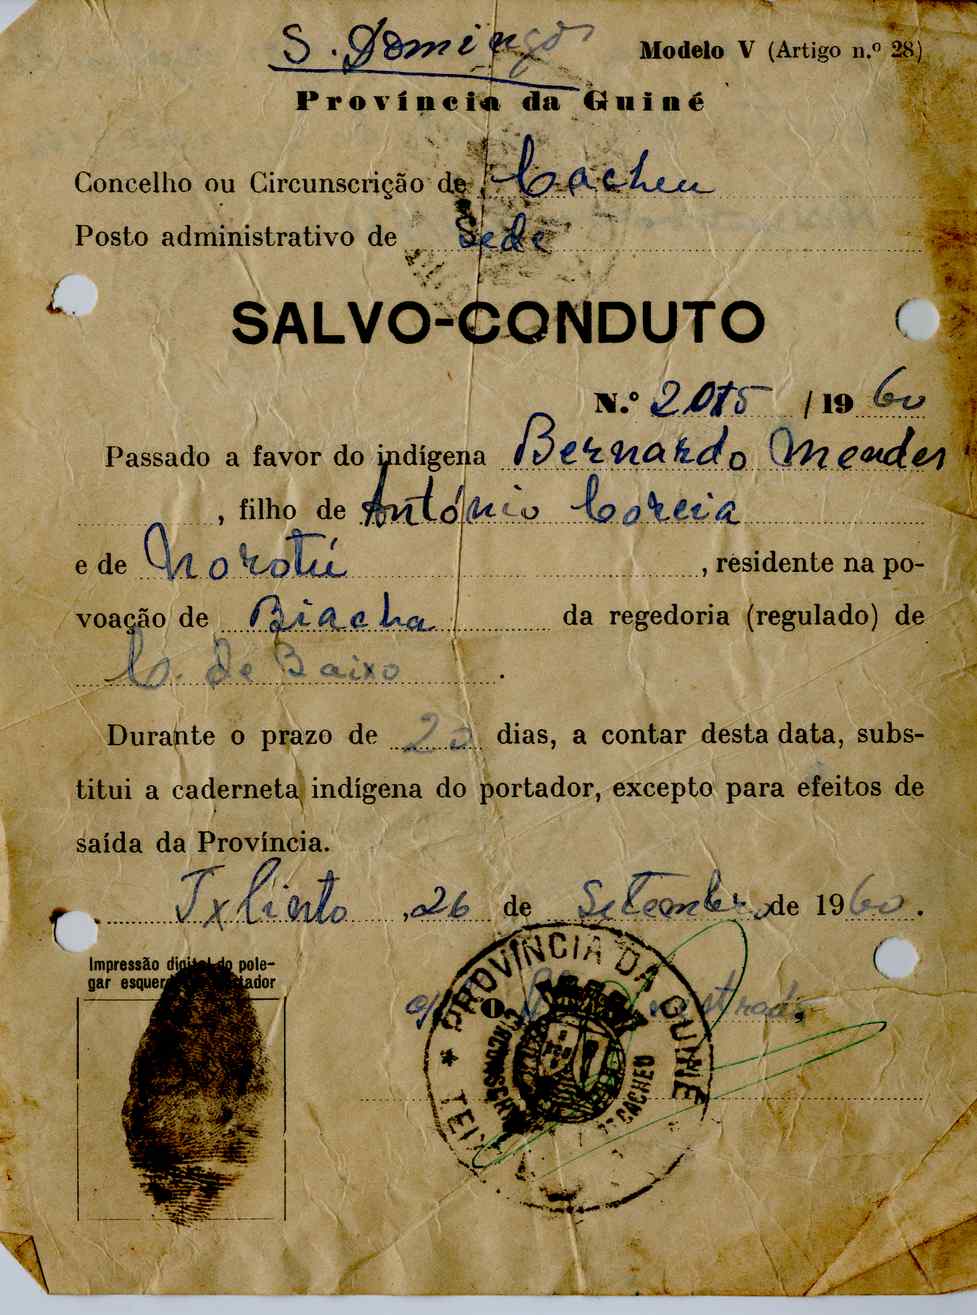 S. Domingos
Modelo V (Artigo n.º 28)
Província da Guiné
Concelho ou Circunscrição de Cacheu
Posto administrativo de Sede
SALVO-CONDUTO
N.º 2015 /19 60
Passado a favor do indígena Bernardo Mendes
, filho de António Correia
e de Norotú , residente na po-
voação de Biacha da regedoria (regulado) de
C. de Baixo .
Durante o prazo de 20 dias, a contar desta data, subs-
titui a caderneta indígena do portador, excepto para efeitos de
saída da Província.
Tx Pinto , 26 de Setembro de 1960.
Impressão digital do pole-
gar esquerdo do portador
O
PROVÍNCIA DA GUINÉ
CACHEU